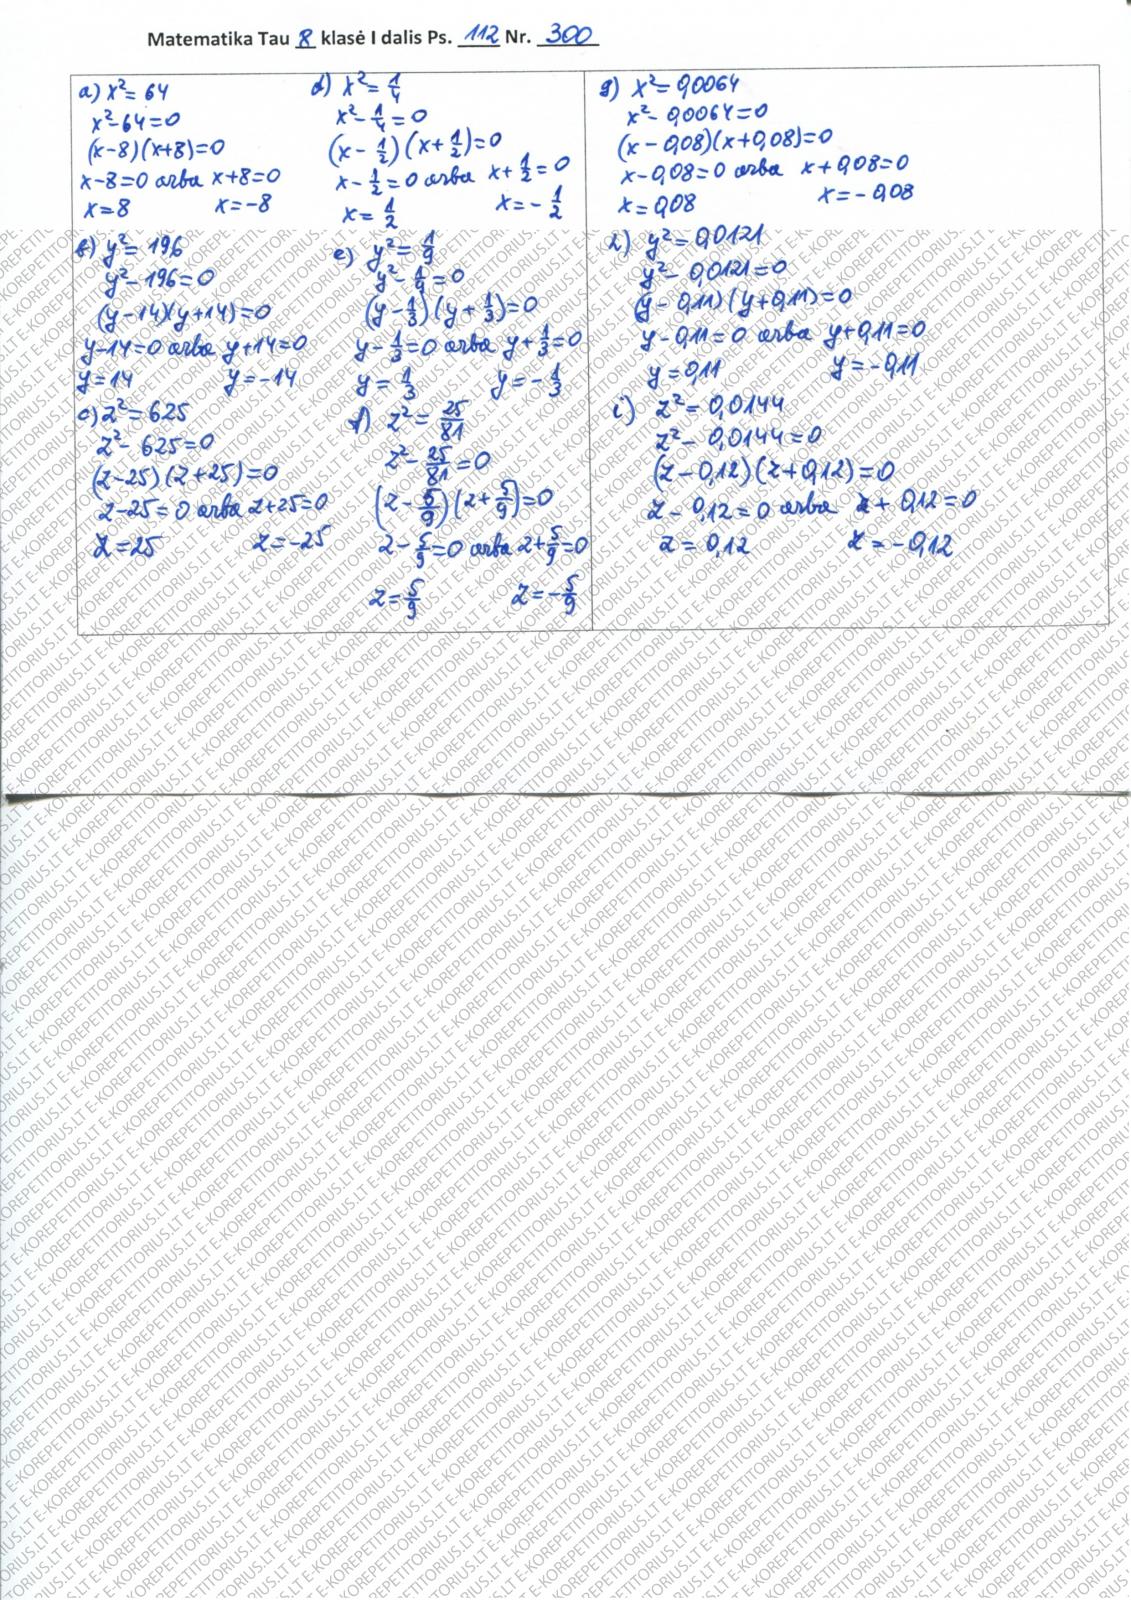 Matematika Tau 8 klasė I dalis Ps. 112 Nr. 300
a) x² = 64
x² - 64 = 0
(x-8)(x+8)=0
x-8=0 arba x+8=0
x=8 x=-8
b) y² = 196
y² - 196 = 0
(y-14)(y+14)=0
y-14=0 arba y+14=0
y=14 y=-14
c) z² = 625
z² - 625 = 0
(z-25)(z+25)=0
z-25=0 arba z+25=0
z=25 z=-25
d) x² = 1/4
x² - 1/4 = 0
(x - 1/2)(x + 1/2)=0
x - 1/2 = 0 arba x + 1/2 = 0
x = 1/2 x = - 1/2
e) y² = 1/9
y² - 1/9 = 0
(y - 1/3)(y + 1/3)=0
y - 1/3 = 0 arba y + 1/3 = 0
y = 1/3 y = - 1/3
f) z² = 25/81
z² - 25/81 = 0
(z - 5/9)(z + 5/9)=0
z - 5/9 = 0 arba z + 5/9 = 0
z = 5/9 z = - 5/9
g) x² = 0,0064
x² - 0,0064 = 0
(x - 0,08)(x + 0,08)=0
x - 0,08 = 0 arba x + 0,08 = 0
x = 0,08 x = - 0,08
h) y² = 0,0121
y² - 0,0121 = 0
(y - 0,11)(y + 0,11)=0
y - 0,11 = 0 arba y + 0,11 = 0
y = 0,11 y = -0,11
i) z² = 0,0144
z² - 0,0144 = 0
(z - 0,12)(z + 0,12)=0
z - 0,12 = 0 arba z + 0,12 = 0
z = 0,12 z = - 0,12
E-KOREPETITORIUS.LT